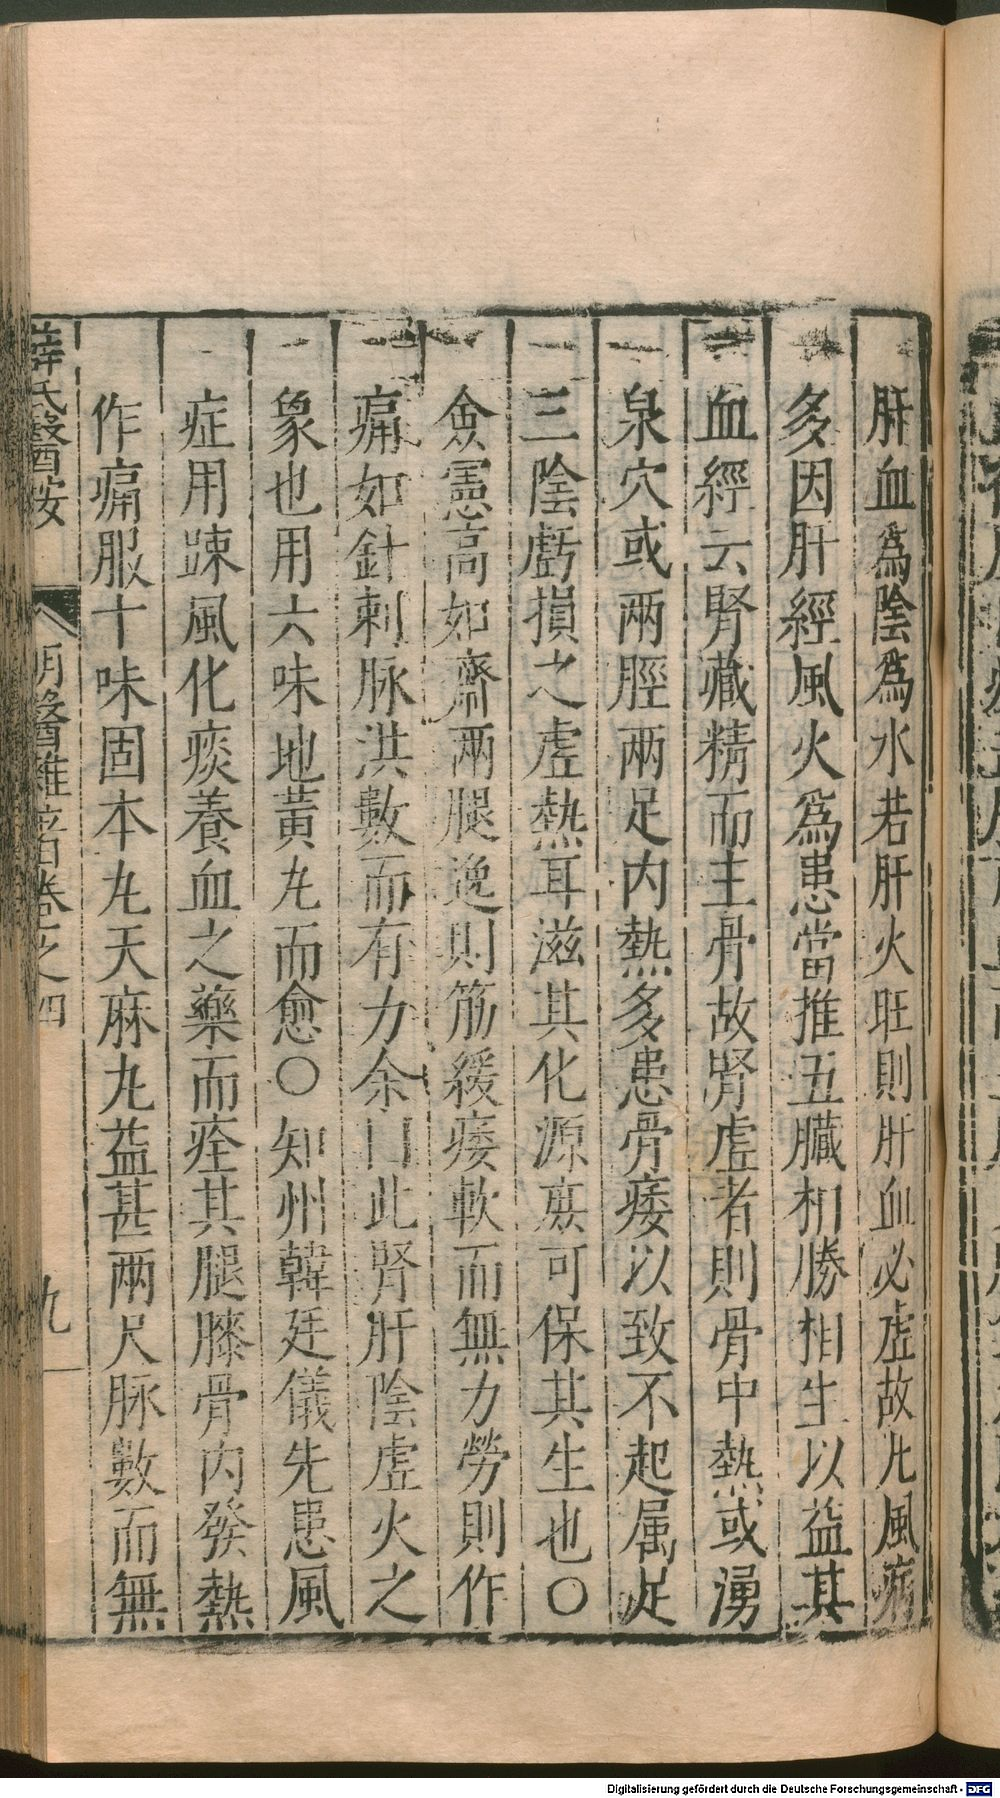 肝血爲陰爲水若肝火旺則肝血必虛故凢風病
多因肝經風火爲患當推五臟相勝相生以益其
血經云腎藏精而主骨故腎虛者則骨中熱或湧
泉穴或兩脛兩足内熱多患骨痿以致不起属足
三陰虧損之虛熱耳滋其化源庻可保其生也〇
僉憲高如齋兩腿逸則筋緩痿軟而無力勞則作
痛如針刺脉洪數而有力余曰此腎肝陰虛火之
象也用六味地黄𠂆而愈〇知州韓廷儀先患風
症用踈風化痰養血之藥而痊其腿膝骨内發熱
作痛服十味固本丸天麻丸益甚兩尺脉數而無
薛氏醫按 明醫雜著卷之四 九
Digitalisierung gefördert durch die Deutsche Forschungsgemeinschaft - DFG